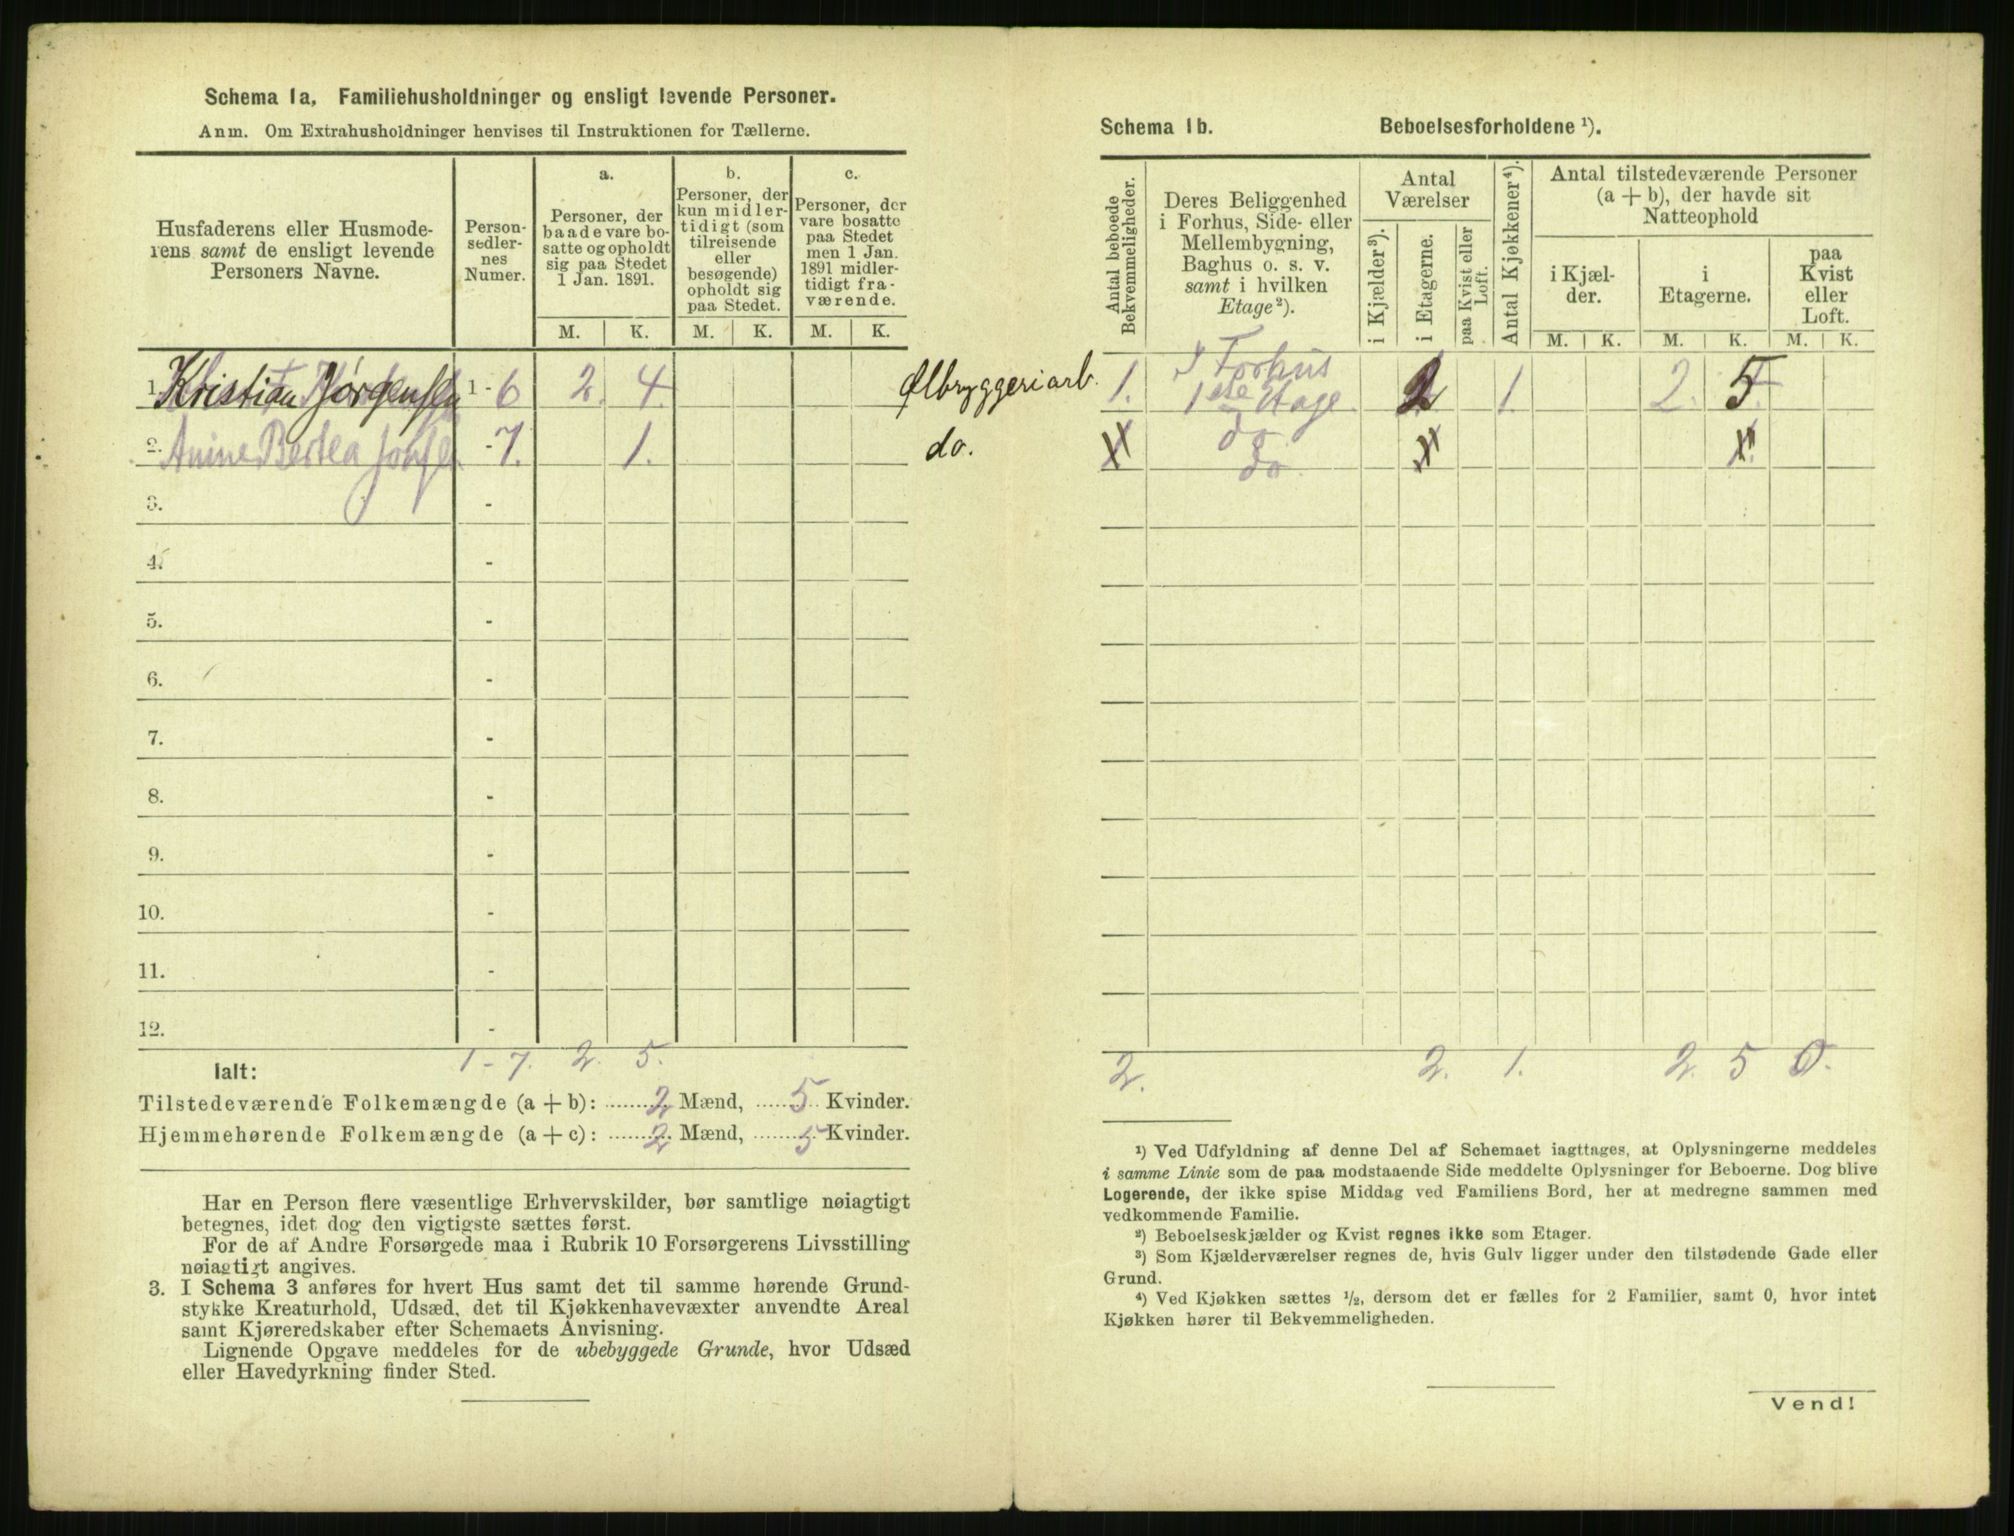 Schema 1a, Familiehusholdninger og ensligt levende Personer.
Anm. Om Extrahusholdninger henvises til Instruktionen for Tællerne.
Husfaderens eller Husmode-
rens samt de ensligt levende
Personers Navne.
Person-
sedler-
nes
Numer.
a.
Personer, der
baade vare bo-
satte og opholdt
sig paa Stedet
1 Jan. 1891.
b.
Personer, der
kun midler-
tidigt (som
tilreisende
eller
besøgende)
opholdt sig
paa Stedet.
c.
Personer, der
vare bosatte
paa Stedet
men 1 Jan.
1891 midler-
tidigt fra-
værende.
M. K. M. K. M. K.
1. Kristian Jørgensen 1 - 6 2. 4. Ølbryggeriarb.
2. Anine Bertea - 7. 1. do.
3. -
4. -
5. -
6. -
7. -
8. -
9. -
10. -
11. -
12. -
Ialt: 1 - 7. 2. 5.
Tilstedeværende Folkemængde (a + b): 2 Mænd, 5 Kvinder.
Hjemmehørende Folkemængde (a + c): 2 Mænd, 5 Kvinder.
Har en Person flere væsentlige Erhvervskilder, bør samtlige nøiagtigt
betegnes, idet dog den vigtigste sættes først.
For de af Andre Forsørgede maa i Rubrik 10 Forsørgerens Livsstilling
nøiagtigt angives.
3. I Schema 3 anføres for hvert Hus samt det til samme hørende Grund-
stykke Kreaturhold, Udsæd, det til Kjøkkenhavevæxter anvendte Areal
samt Kjøreredskaber efter Schemaets Anvisning.
Lignende Opgave meddeles for de ubebyggede Grunde, hvor Udsæd
eller Havedyrkning finder Sted.
Schema 1b. Beboelsesforholdene ¹).
Antal beboede
Bekvemmeligheder.
Deres Beliggenhed
i Forhus, Side- eller
Mellembygning,
Baghus o. s. v.
samt i hvilken
Etage²).
Antal
Værelser
i Kjælder³).
i Etagerne.
paa Kvist eller
Loft.
Antal Kjøkkener⁴).
Antal tilstedeværende Personer
(a + b), der havde sit
Natteophold
i Kjæl-
der.
i
Etagerne.
paa
Kvist
eller
Loft.
M. K. M. K. M. K.
1. I Forhus
1ste Etage 2 1. 2. 5
do
do
2. 2. 1. 2. 5 0.
¹) Ved Udfyldning af denne Del af Schemaet iagttages, at Oplysningerne meddeles
i samme Linie som de paa modstaaende Side meddelte Oplysninger for Beboerne. Dog blive
Logerende, der ikke spise Middag ved Familiens Bord, her at medregne sammen med
vedkommende Familie.
²) Beboelseskjælder og Kvist regnes ikke som Etager.
³) Som Kjælderværelser regnes de, hvis Gulv ligger under den tilstødende Gade eller
Grund.
⁴) Ved Kjøkken sættes ½, dersom det er fælles for 2 Familier, samt 0, hvor intet
Kjøkken hører til Bekvemmeligheden.
Vend!